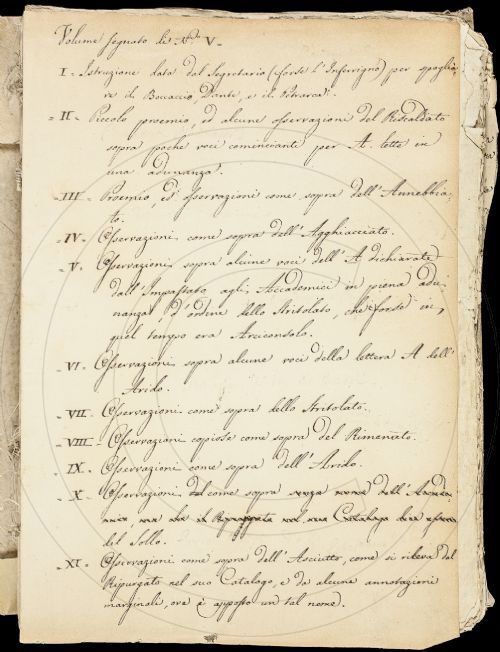 Volume segnato di N.° V.
I - Istruzione data dal Segretario (forse l'Inferrigno) per spoglia-
re il Boccaccio, Dante, e il Petrarca.
II - Piccolo proemio, ed alcune osservazioni del Riscaldato
sopra poche voci comincianti per A. lette in
una adunanza.
III - Proemio, ed osservazioni come sopra dell'Annebbia-
to.
IV - Osservazioni come sopra dell'Agghiacciato.
V - Osservazioni sopra alcune voci dell'A dichiarate
dall'Impastato agli Accademici in piena adu-
nanza, d'ordine dello Stritolato, che forse in
quel tempo era Arciconsolo.
VI - Osservazioni sopra alcune voci della lettera A dell'
Arido.
VII - Osservazioni come sopra dello Stritolato.
VIII - Osservazioni copiose come sopra del Rimenato.
IX - Osservazioni come sopra dell'Arido.
X - Osservazioni come sopra senza nome dell'
ma il nel suo Catalogo
del Sollo.
XI - Osservazioni come sopra dell'Asciutto, come si rileva dal
Ripurgato nel suo Catalogo, e da alcune annotazioni
marginali, ove è apposto un tal nome.